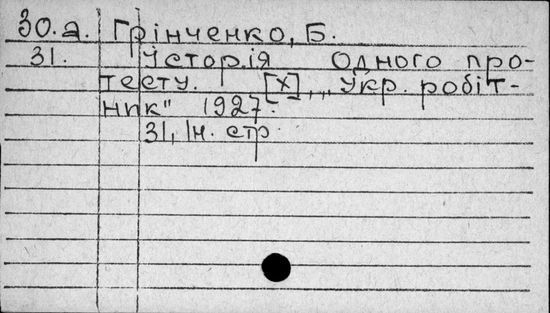 30.а. Грінченко, Б.
31. Історія одного про-
тесту. [Х], „Укр. робіт-
ник" 1927.
31, Ін. стр